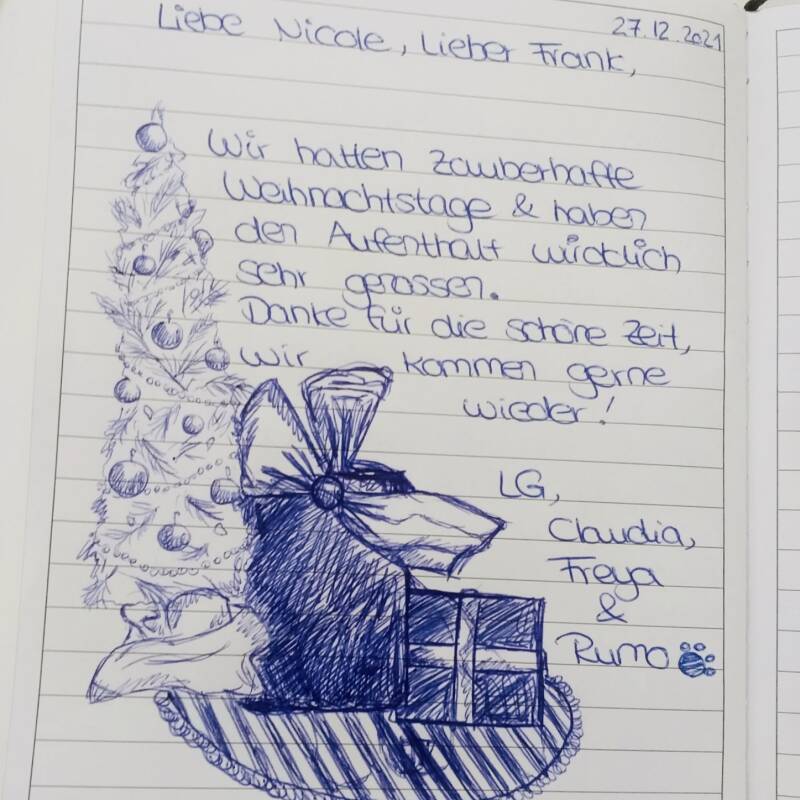 27.12.2021
Liebe Nicole, Lieber Frank,
Wir hatten zauberhafte
Weihnachtstage & haben
den Aufenthalt wirklich
sehr genossen.
Danke für die schöne Zeit,
wir kommen gerne
wieder!
LG,
Claudia,
Freya
&
Rumo